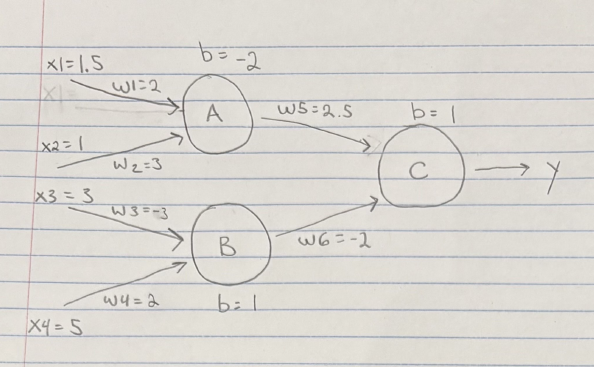 b = -2
x1=1.5
w1=2
A
w5=2.5
b= 1
x2=1
w2=3
C
y
x3 = 3
w3=-3
B
w6 = -2
w4=2
b= 1
x4= 5